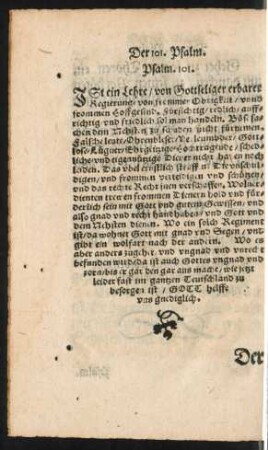 Der 101. Psalm.
Psalm. 101.
ISt ein Lehre / von Gottseliger erbarer
Regierung / von frommer Obrigkeit / vnnd
frommen Hoffgesind. Fürsichtig / redlich / auff-
richtig vnd friedlich sol man handeln. Böß sa-
chen dem Nehsten zu schaden nicht fürnemen.
Falsche leute / Ohrenbleser / Verleumbder / Gott-
lose / Lügner / Ehrgeitzige / Hoffertige / sched-
liche vnd eigennützige Diener nicht haben noch
leiden. Das vbel ernstlich straffen /
digen / vnd frommen vertedigen vnd schützen /
vnd das recht Recht jnen verschaffen. Woluer-
dienten trewen frommen Dienern hold vnd för-
derlich sein mit Gott vnd gutem Gewissen / vnd
also gnad vnd recht handhaben / vnd Gott vnd
dem Nehsten dienen. Wo ein solch Regiment
ist / da wohnet Gott mit gnad vnd Segen / vnd
gibt ein wolfart nach der andern. Wo es
aber anders zugehet / vnd vngnad vnd vnrecht
befunden wird / da ist auch Gottes vngnad vnd
zorn / bis er gar den gar aus mache / wie jetzt
leider fast im gantzen Teutschland zu
besorgen ist / GOTT helffe
vns gnediglich.
Der